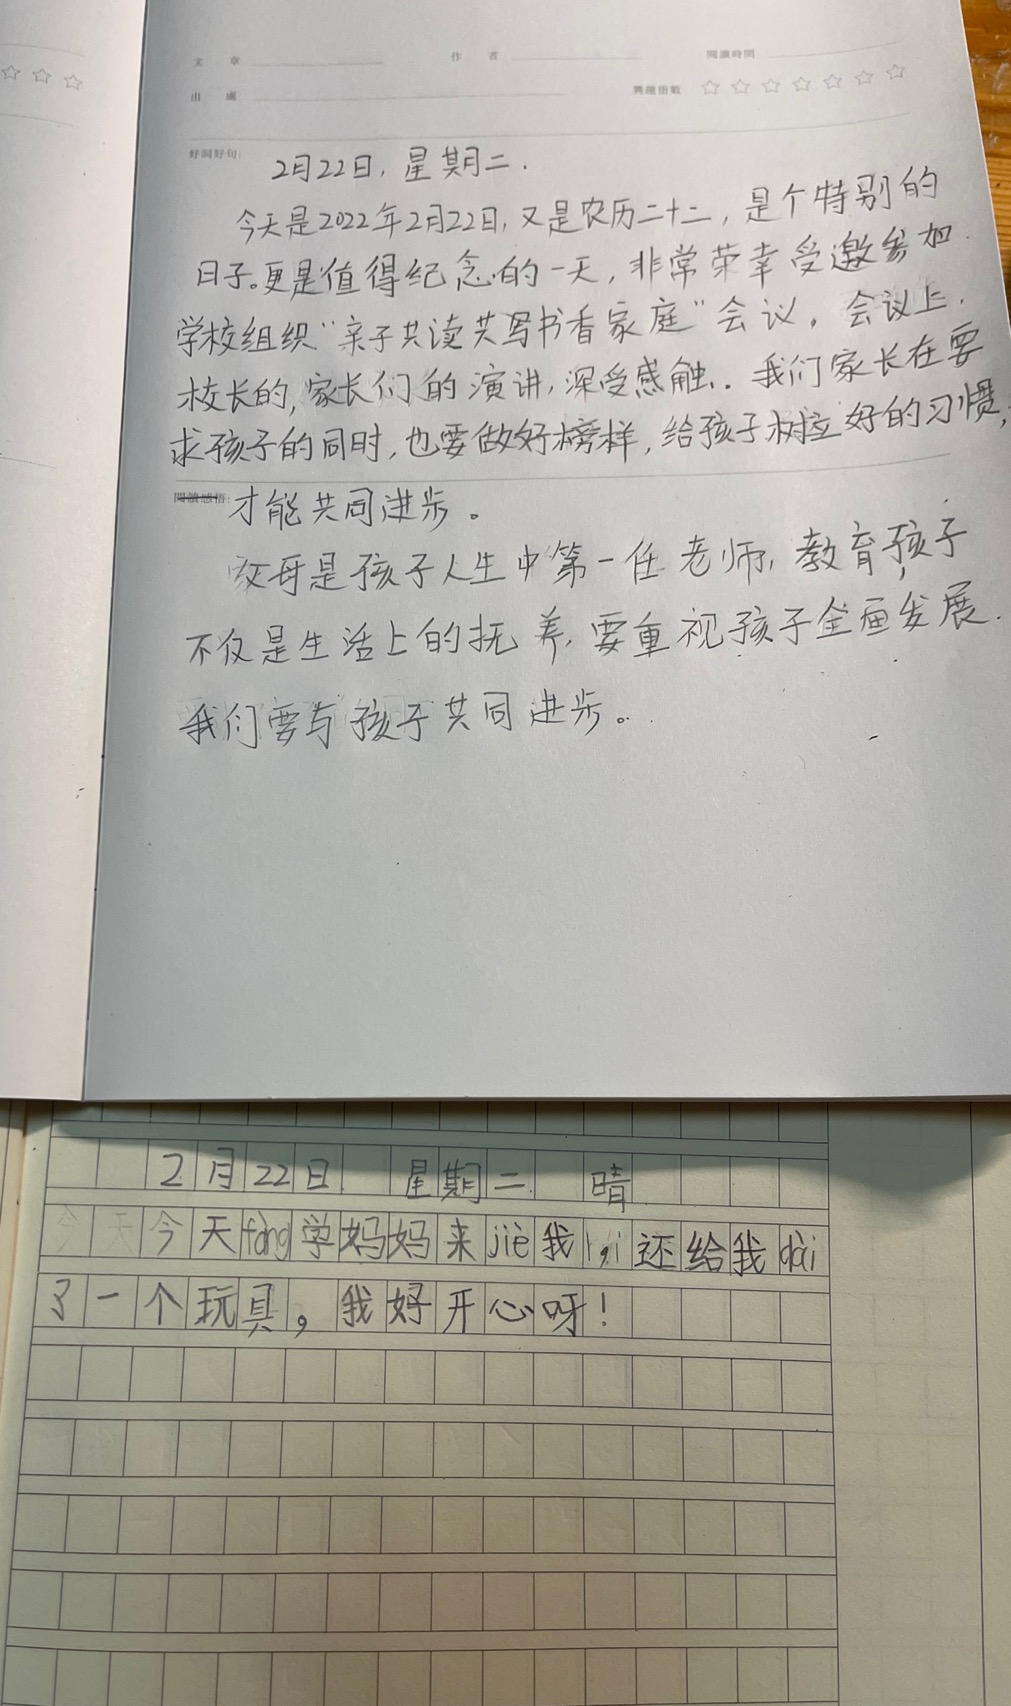 文 章 作 者 閱讀時間
出 處 興趣指數
好詞好句:
2月22日，星期二.
今天是2022年2月22日,又是农历二十二，是个特别的
日子。更是值得纪念的一天，非常荣幸受邀参加
学校组织“亲子共读共写书香家庭”会议，会议上.
校长的,家长们的演讲,深受感触.. 我们家长在要
求孩子的同时,也要做好榜样,给孩子树立好的习惯,
閱讀感悟:
才能共同进步。
父母是孩子人生中第一任老师,教育孩子
不仅是生活上的抚养,要重视孩子全面发展.
我们要与孩子共同进步。
2月22日 星期二 晴
今天今天fàng学妈妈来jiē我,还给我dài
了一个玩具，我好开心呀！